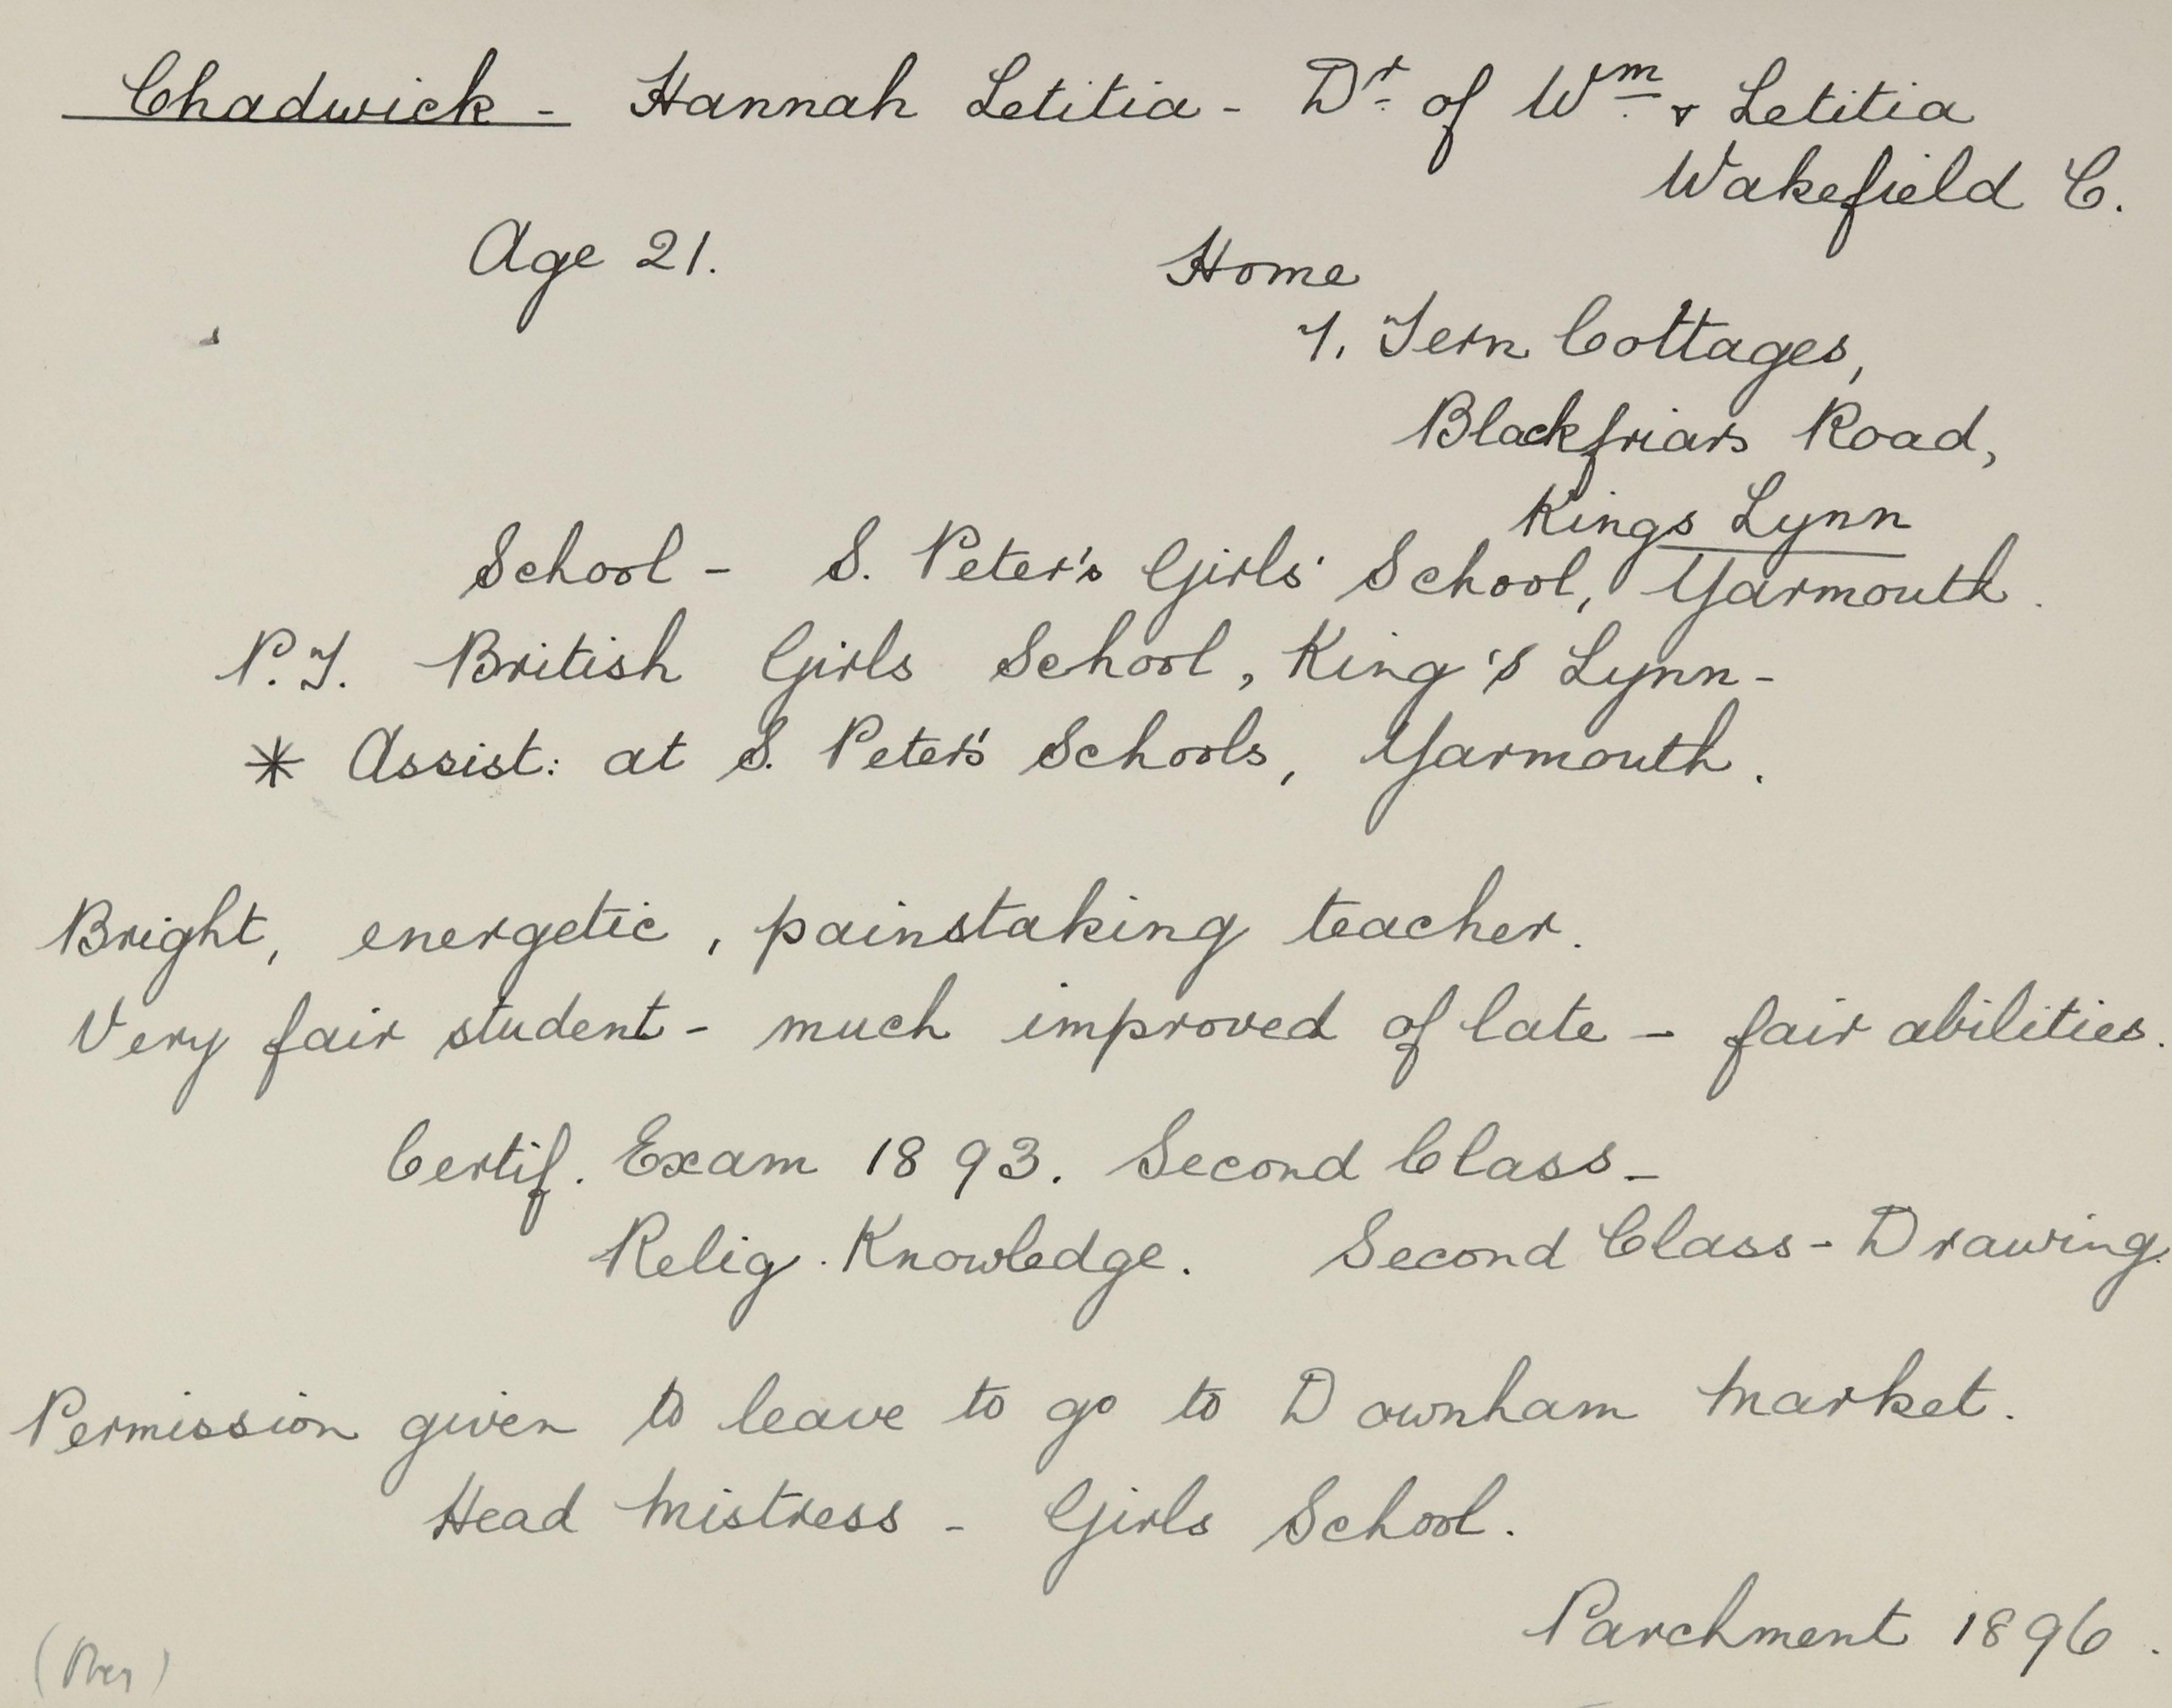 Chadwick - Hannah Letitia - Dr. of Wm. & Letitia
Wakefield C.
Age 21.
Home
7, Tern Cottages,
Blackfriars Road,
Kings Lynn
School - S. Peter's Girls' School, Yarmouth.
P.T. British Girls School, King's Lynn -
* Assist: at S. Peter's Schools, Yarmouth.
Bright, energetic, painstaking teacher.
Very fair student - much improved of late - fair abilities.
Certif. Exam 1893. Second Class -
Relig. Knowledge. Second Class - Drawing.
Permission given to leave to go to Downham Market.
Head Mistress - Girls School.
Parchment 1896.